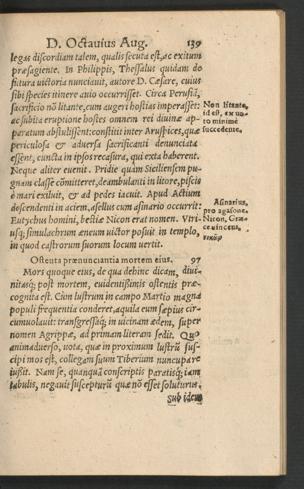 D. Octauius Aug. 139
legas discordiam talem, qualis secuta est, ac exitum
præsagiente. In Philippis, Thessalus quidam de
futura victoria nunciauit, autore D. Cæsare, cuius
sibi species itinere auio occurrisset. Circa Perusiã,
sacrificio nõ litante, cum augeri hostias imperasset:
ac subita eruptione hostes omnem rei diuinæ ap-
paratum abstulissent: constitit inter Aruspices, quæ
periculosa & aduersa sacrificanti denunciata
essent, cuncta in ipsos recasura, qui exta haberent.
Neque aliter euenit. Pridie quàm Siciliensem pu-
gnam classe cõmitteret, deambulanti in litore, piscis
è mari exiluit, & ad pedes iacuit. Apud Actium
descendenti in aciem, asellus cum asinario occurrit:
Eutychus homini, bestiæ Nicon erat nomen. Vtri-
usq; simulachrum æneum victor posuit in templo,
in quod castrorum suorum locum uertit.
Non litante,
id est,
minimè
succedente.
Asinarius,
pro agasone.
Nicon, Græ-
ce uincens,
Ostenta prænunciantia mortem eius. 97
Mors quoque eius, de qua dehinc dicam, diui-
nitasq; post mortem, euidentißimis ostentis præ-
cognita est. Cùm lustrum in campo Martio magna
populi frequentia conderet, aquila eum sæpius cir-
cumuolauit: transgressaq; in uicinam ædem, super
nomen Agrippæ, ad primam literam sedit. Quo
animaduerso, uota, quæ in proximum lustrũ sus-
cipi mos est, collegam suum Tiberium nuncupare
iußit. Nam se, quanquã conscriptis paratisq; iam
tabulis, negauit suscepturũ quæ nõ esset soluturus.
Sub idem